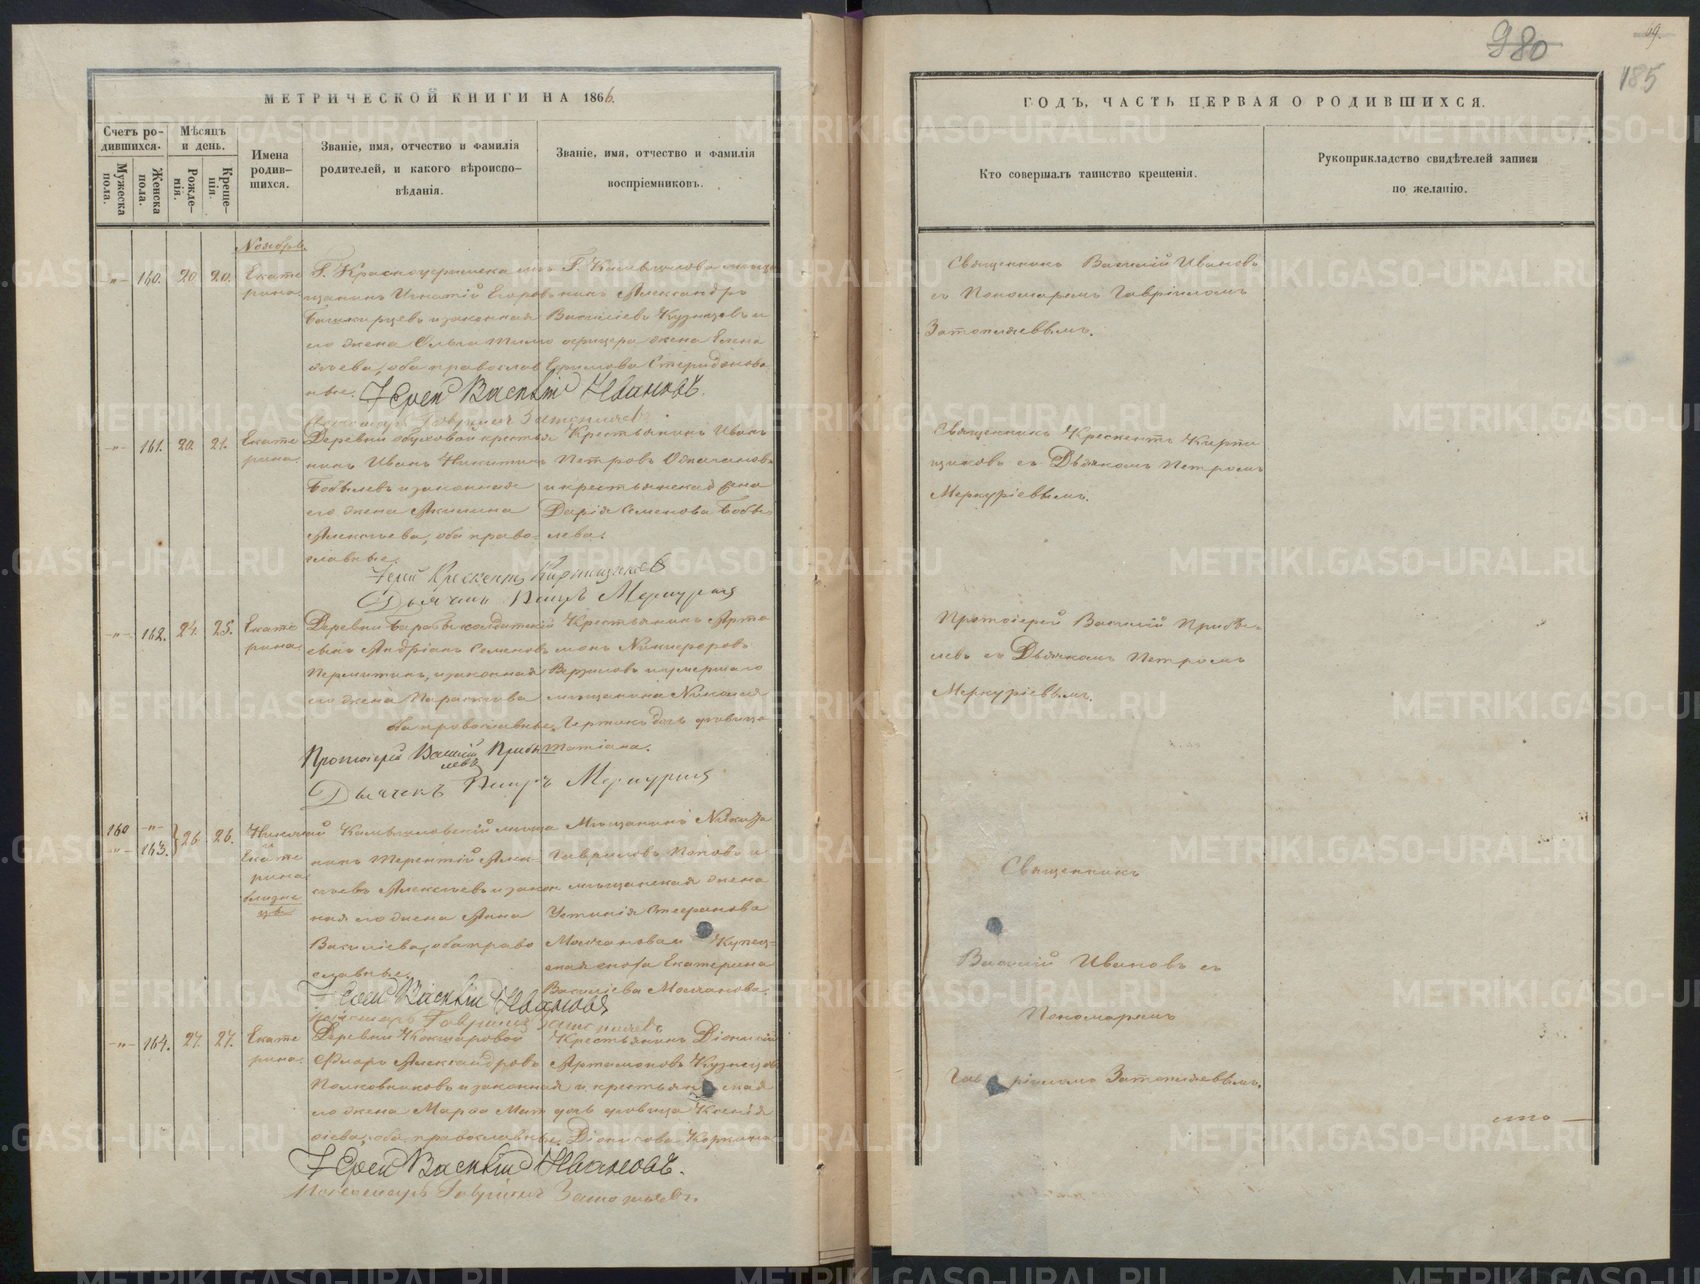 МЕТРИЧЕСКОЙ КНИГИ НА 1866.
Счетъ ро-
дившихся.
Мужеска
пола.
Женска
пола.
Мѣсяцъ
и день.
Рожде-
нія.
Креще-
нія.
Имена
родив-
шихся.
Званіе, имя, отчество и фамилія
родителей, и какого вѣроиспо-
вѣданія.
Званіе, имя, отчество и фамилія
воспріемниковъ.
Ноябрь
160. 20. 20.
Екате
рина.
Г. Красноуфимска мѣ
щанинъ Игнатій Егоровъ
Башкирцевъ и законная
его жена Ольга
оба православ
ные.
Г. Камышлова мѣща
нинъ Александръ
Василіевъ Кузнецовъ и
офицера жена Елена
Ефимова Спиридонова
Іерей Василій Ивановъ.
Пономарь Гавріилъ Затопляевъ.
161. 20. 21.
Екате
рина.
Деревни Обуховой крестья
нинъ Иванъ Никитинъ
Бобылевъ и законная
его жена Акилина
Алексѣева, оба право-
славные.
Крестьянинъ Иванъ
Петровъ
и крестьянская жена
Дарія Семенова Бобы
лева.
Іерей Крискентъ Кирпищиковъ
Дьячекъ Петръ Меркурьев
162. 24. 25.
Екате
рина.
Деревни
Андріанъ Семеновъ
Пермитинъ, и законная
его жена Параскева
оба православные.
Крестьянинъ Арта
монъ Никифоровъ
и умершаго
мѣщанина Николая
дочь дѣвица
Татіана.
Протоіерей Василій Прибы
левъ
Дьячекъ Петръ Меркурьев
160
163. 26. 26.
Николай
и
Екате
рина
близне
цы
Камышловскій мѣща
нинъ Терентій Алек-
сѣевъ Алексѣевъ и закон
ная его жена Анна
Василіева, оба право
славные.
Мѣщанинъ
Гавриловъ Поповъ и
мѣщанская жена
Устинія Стефанова
Молчанова и Купец-
кая сноха Екатерина
Василіева Молчанова.
Іерей Василій Ивановъ
Пономарь Гавріилъ Затопляевъ
164. 27. 27.
Екате
рина.
Деревни Кокшаровой
Ѳедоръ Александровъ
Полковниковъ и законная
его жена Марѳа Мат
ѳіева, оба православные.
Крестьянинъ Діонисій
Артамоновъ Кузнецовъ
и крестьянская
дочь дѣвица Ксенія
Діонисова
Іерей Василій Ивановъ.
Пономарь Гавріилъ Затопляевъ.
980
19.
185
ГОДЪ, ЧАСТЬ ПЕРВАЯ О РОДИВШИХСЯ.
Кто совершалъ таинство крещенія.
Рукоприкладство свидѣтелей записи
по желанію.
Священникъ Василій Ивановъ
съ Пономаремъ Гавріиломъ
Затопляевымъ.
Священникъ Крискентъ Кирпи
щиковъ съ Дьячкомъ Петромъ
Меркуріевымъ.
Протоіерей Василій Прибы-
левъ съ Дьячкомъ Петромъ
Меркуріевымъ.
Священникъ
Василій Ивановъ съ
Пономаремъ
Гавріиломъ Затопляевымъ.
METRIKI.GASO-URAL.RU